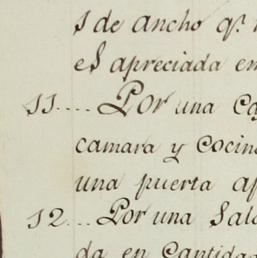 s de ancho q.^e
es apreciada en
11.... Por una
camara y cocin
una puerta
12... Por una Sal
da en cantidad